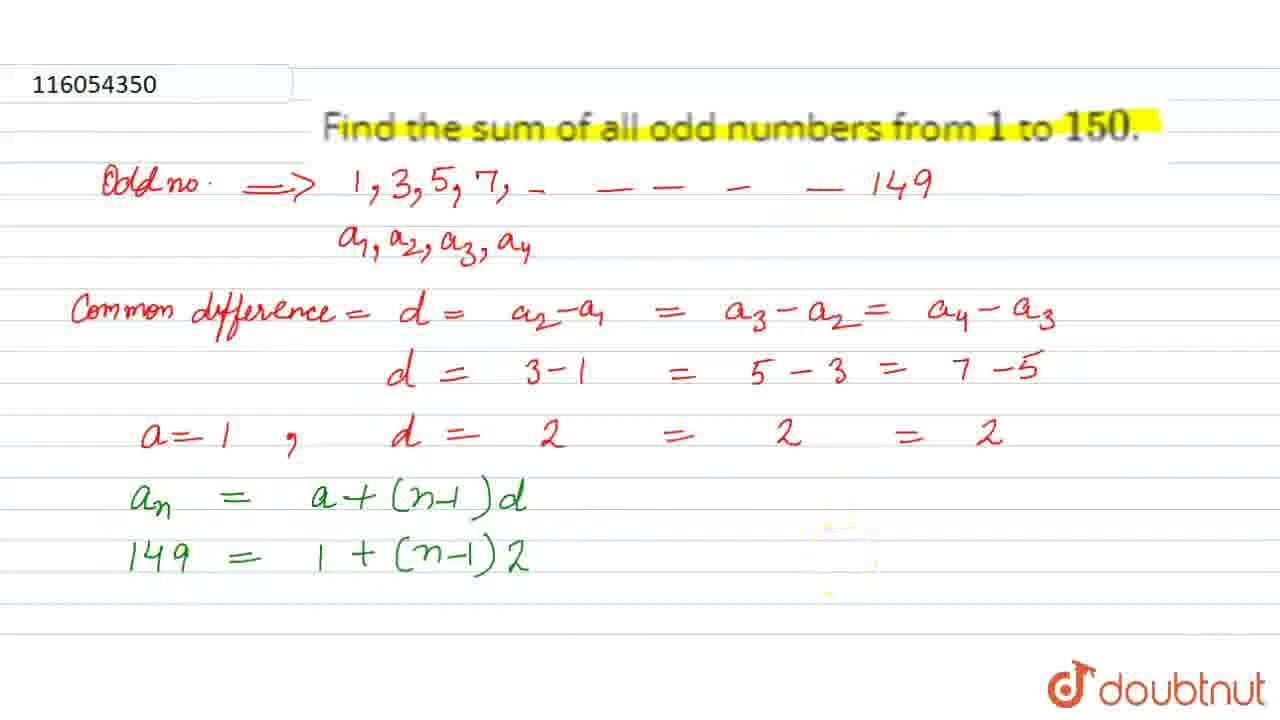 116054350
Find the sum of all odd numbers from 1 to 150.
Odd no. => 1, 3, 5, 7, - — — - — 149
a1, a2, a3, a4
Common difference = d = a2 - a1 = a3 - a2 = a4 - a3
d = 3 - 1 = 5 - 3 = 7 - 5
a = 1 , d = 2 = 2 = 2
an = a + (n-1) d
149 = 1 + (n-1) 2
doubtnut